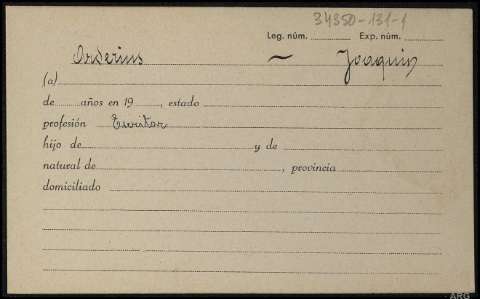 34350-131-1
Leg. núm. Exp. núm.
Arderius ~ Joaquin
(a)
de años en 19 , estado
profesión Escritor
hijo de y de
natural de , provincia
domiciliado
ARG